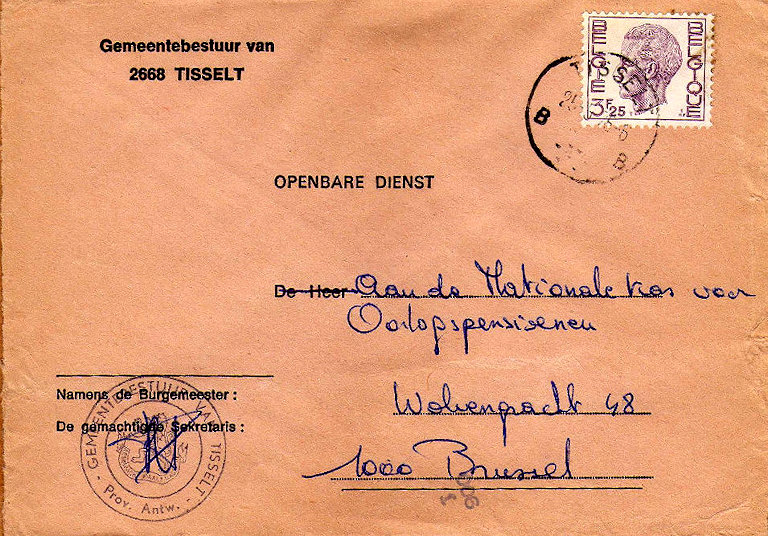 Gemeentebestuur van
2668 TISSELT
BELGIE
BELGIQUE
3F25
TISSELT
B B
OPENBARE DIENST
De Heer Aan de Nationale Kas voor
Oorlogspensioenen
Namens de Burgemeester :
De gemachtigde Sekretaris :
Wolvengracht 48
1000 Brussel
GEMEENTEBESTUUR VAN TISSELT
- Prov. Antw. -